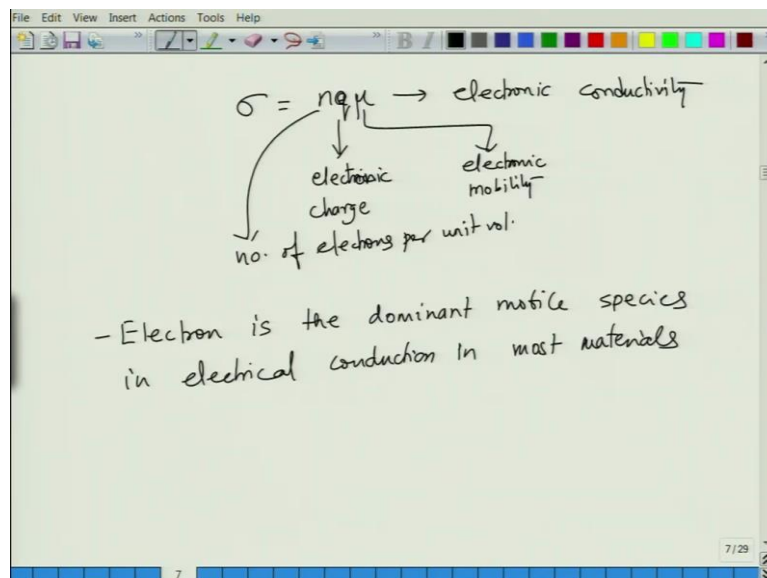 File Edit View Insert Actions Tools Help
B I
σ = nqμ → electronic conductivity
electronic charge
electronic mobility
no. of electrons per unit vol.
- Electron is the dominant mobile species
in electrical conduction in most materials
7/29
7